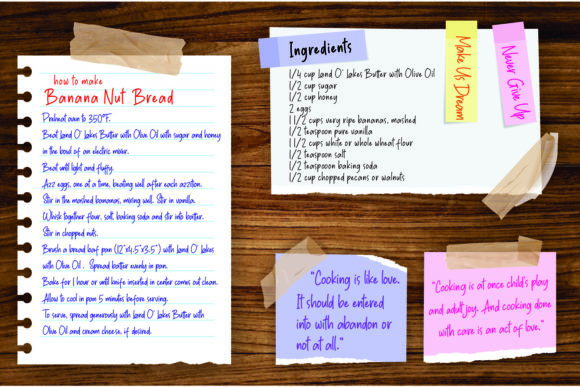 how to make
Banana Nut Bread
Preheat oven to 350°F.
Beat Land O' Lakes Butter with Olive Oil with sugar and honey
in the bowl of an electric mixer.
Beat until light and fluffy.
Azz eggs, one at a time, beating well after each azzition.
Stir in the mashed bananas, mixing well. Stir in vanilla.
Whisk together flour, salt, baking soda and stir into butter.
Stir in chopped nuts.
Brush a bread loaf pan (12"x4.5"x3.5") with Land O' Lakes
with Olive Oil. Spread batter evenly in pan.
Bake for 1 hour or until knife inserted in center comes out clean.
Allow to cool in pan 5 minutes before serving.
To serve, spread generously with Land O' Lakes Butter with
Olive Oil and cream cheese, if desired.
Ingredients
1/4 cup Land O' Lakes Butter with Olive Oil
1/2 cup sugar
1/2 cup honey
2 eggs
1 1/2 cups very ripe bananas, mashed
1/2 teaspoon pure vanilla
1 1/2 cups white or whole wheat flour
1/2 teaspoon salt
1/2 teaspoon baking soda
1/2 cup chopped pecans or walnuts
Make Us Dream
Never Give Up
"Cooking is like love.
It should be entered
into with abandon or
not at all."
"Cooking is at once child's play
and adult joy. And cooking done
with care is an act of love."